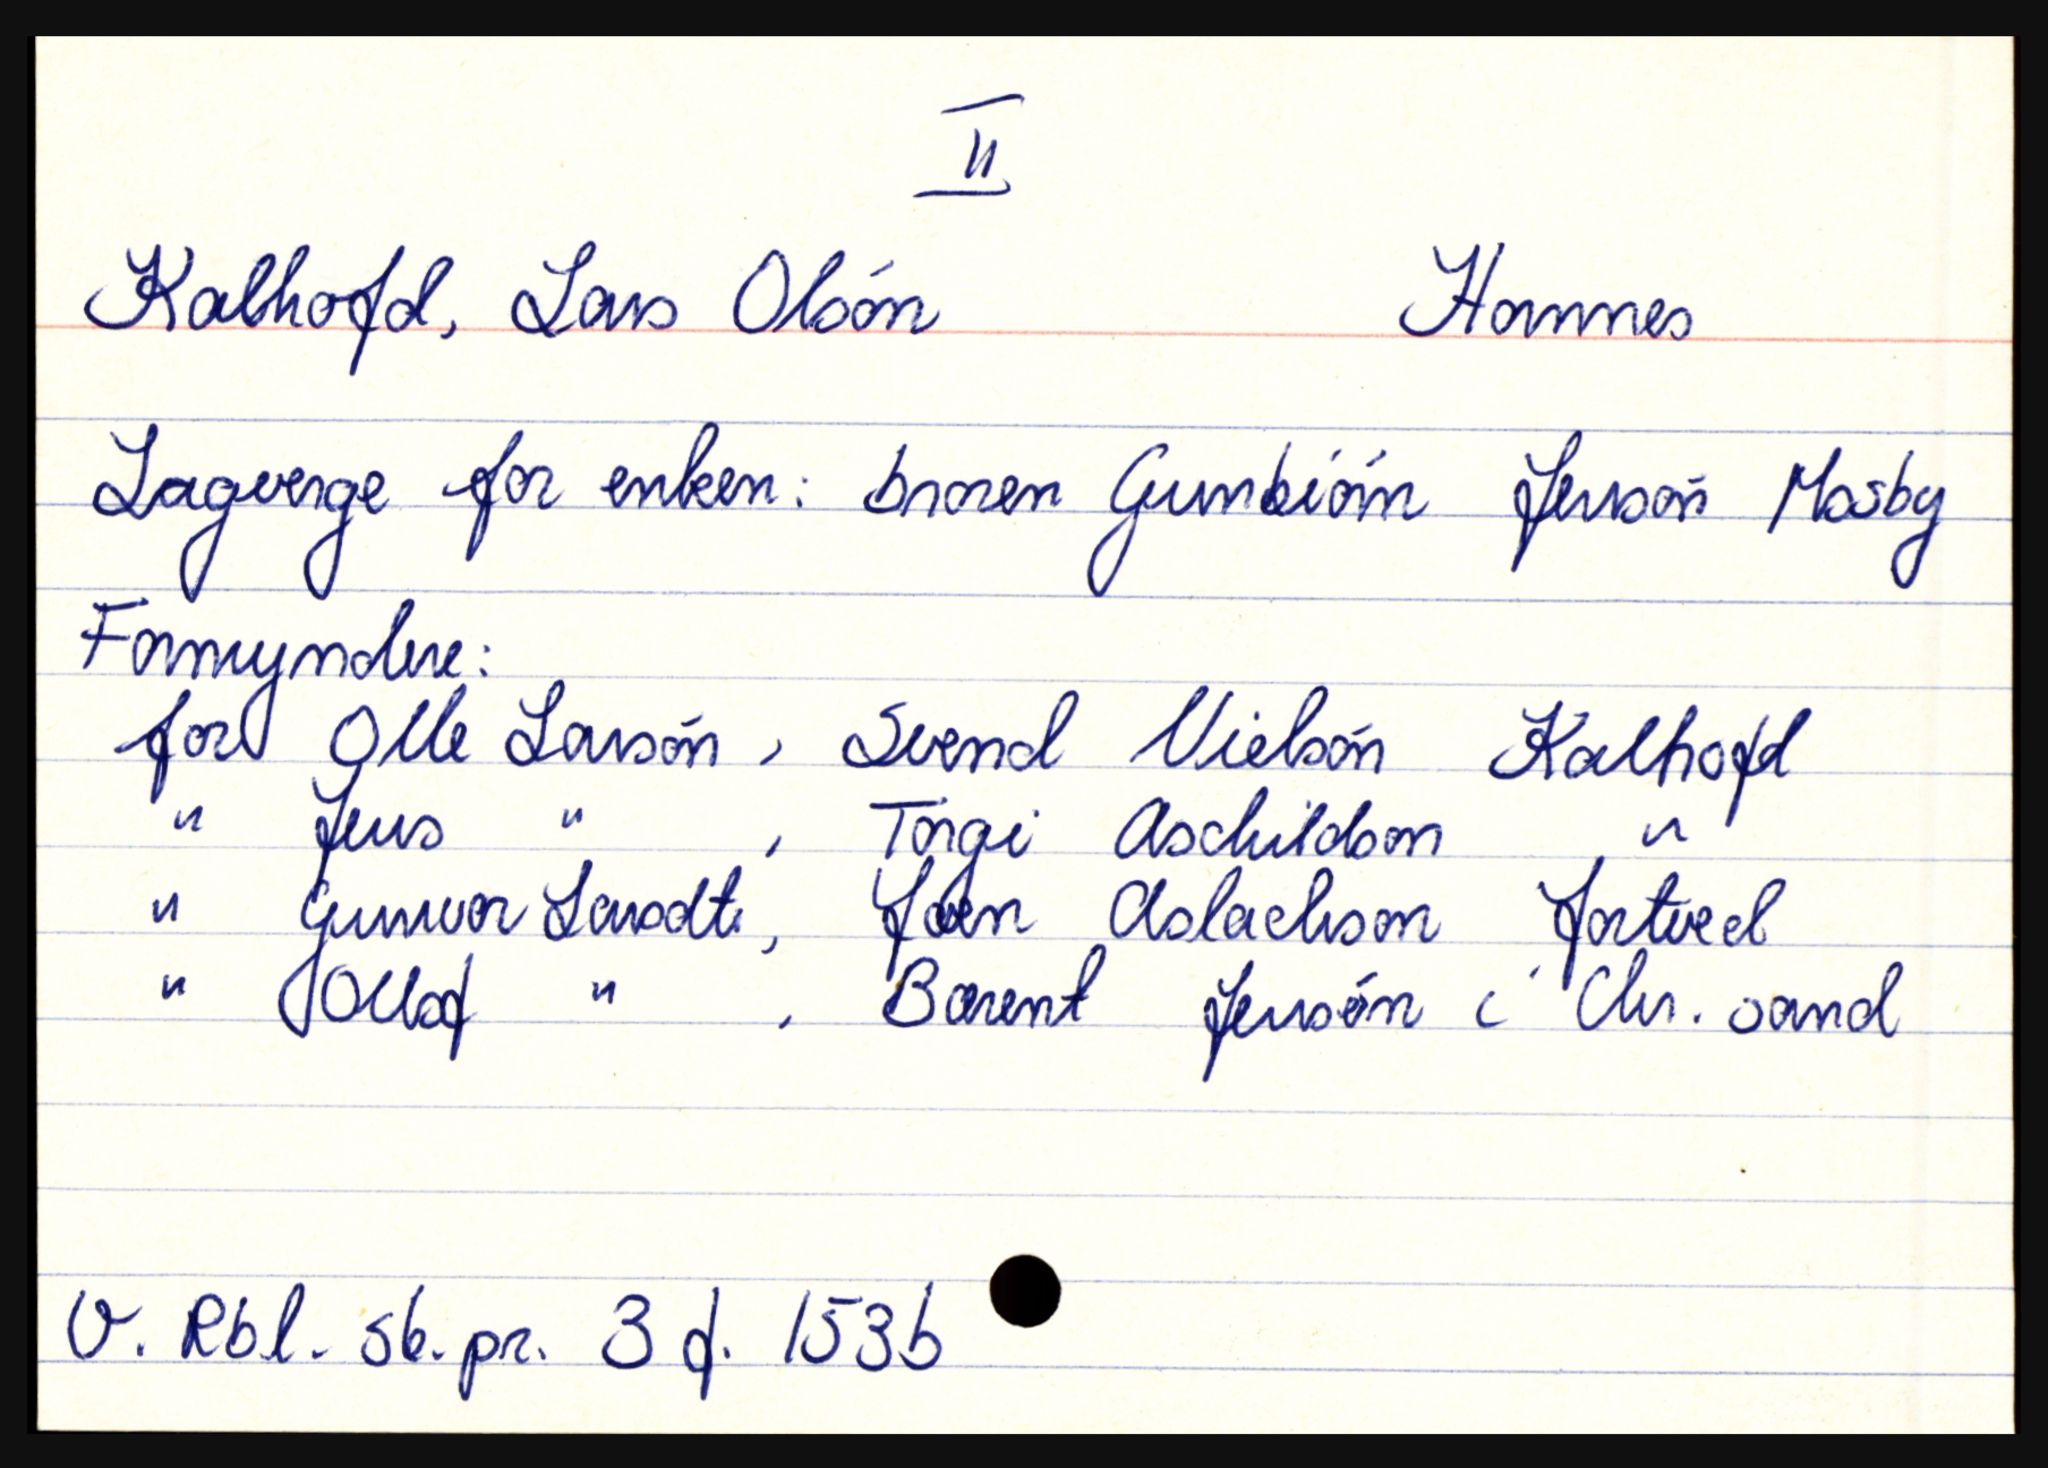 II
Kalhofd, Lars Olsøn Hannes
Lagverge for enken: broren Gunbiørn Jensøn Mosby
Formyndere:
for Olle Larsøn, Svend Nielsøn Kalhofd
" Jens " , Torgi Aschildson "
" Gunvor Larsdtr, Joen Aslachson Jortveel
" Ollof " , Barent Jensøn i Chr.sand
V. Rbl. sk.pr. 3 f. 153b